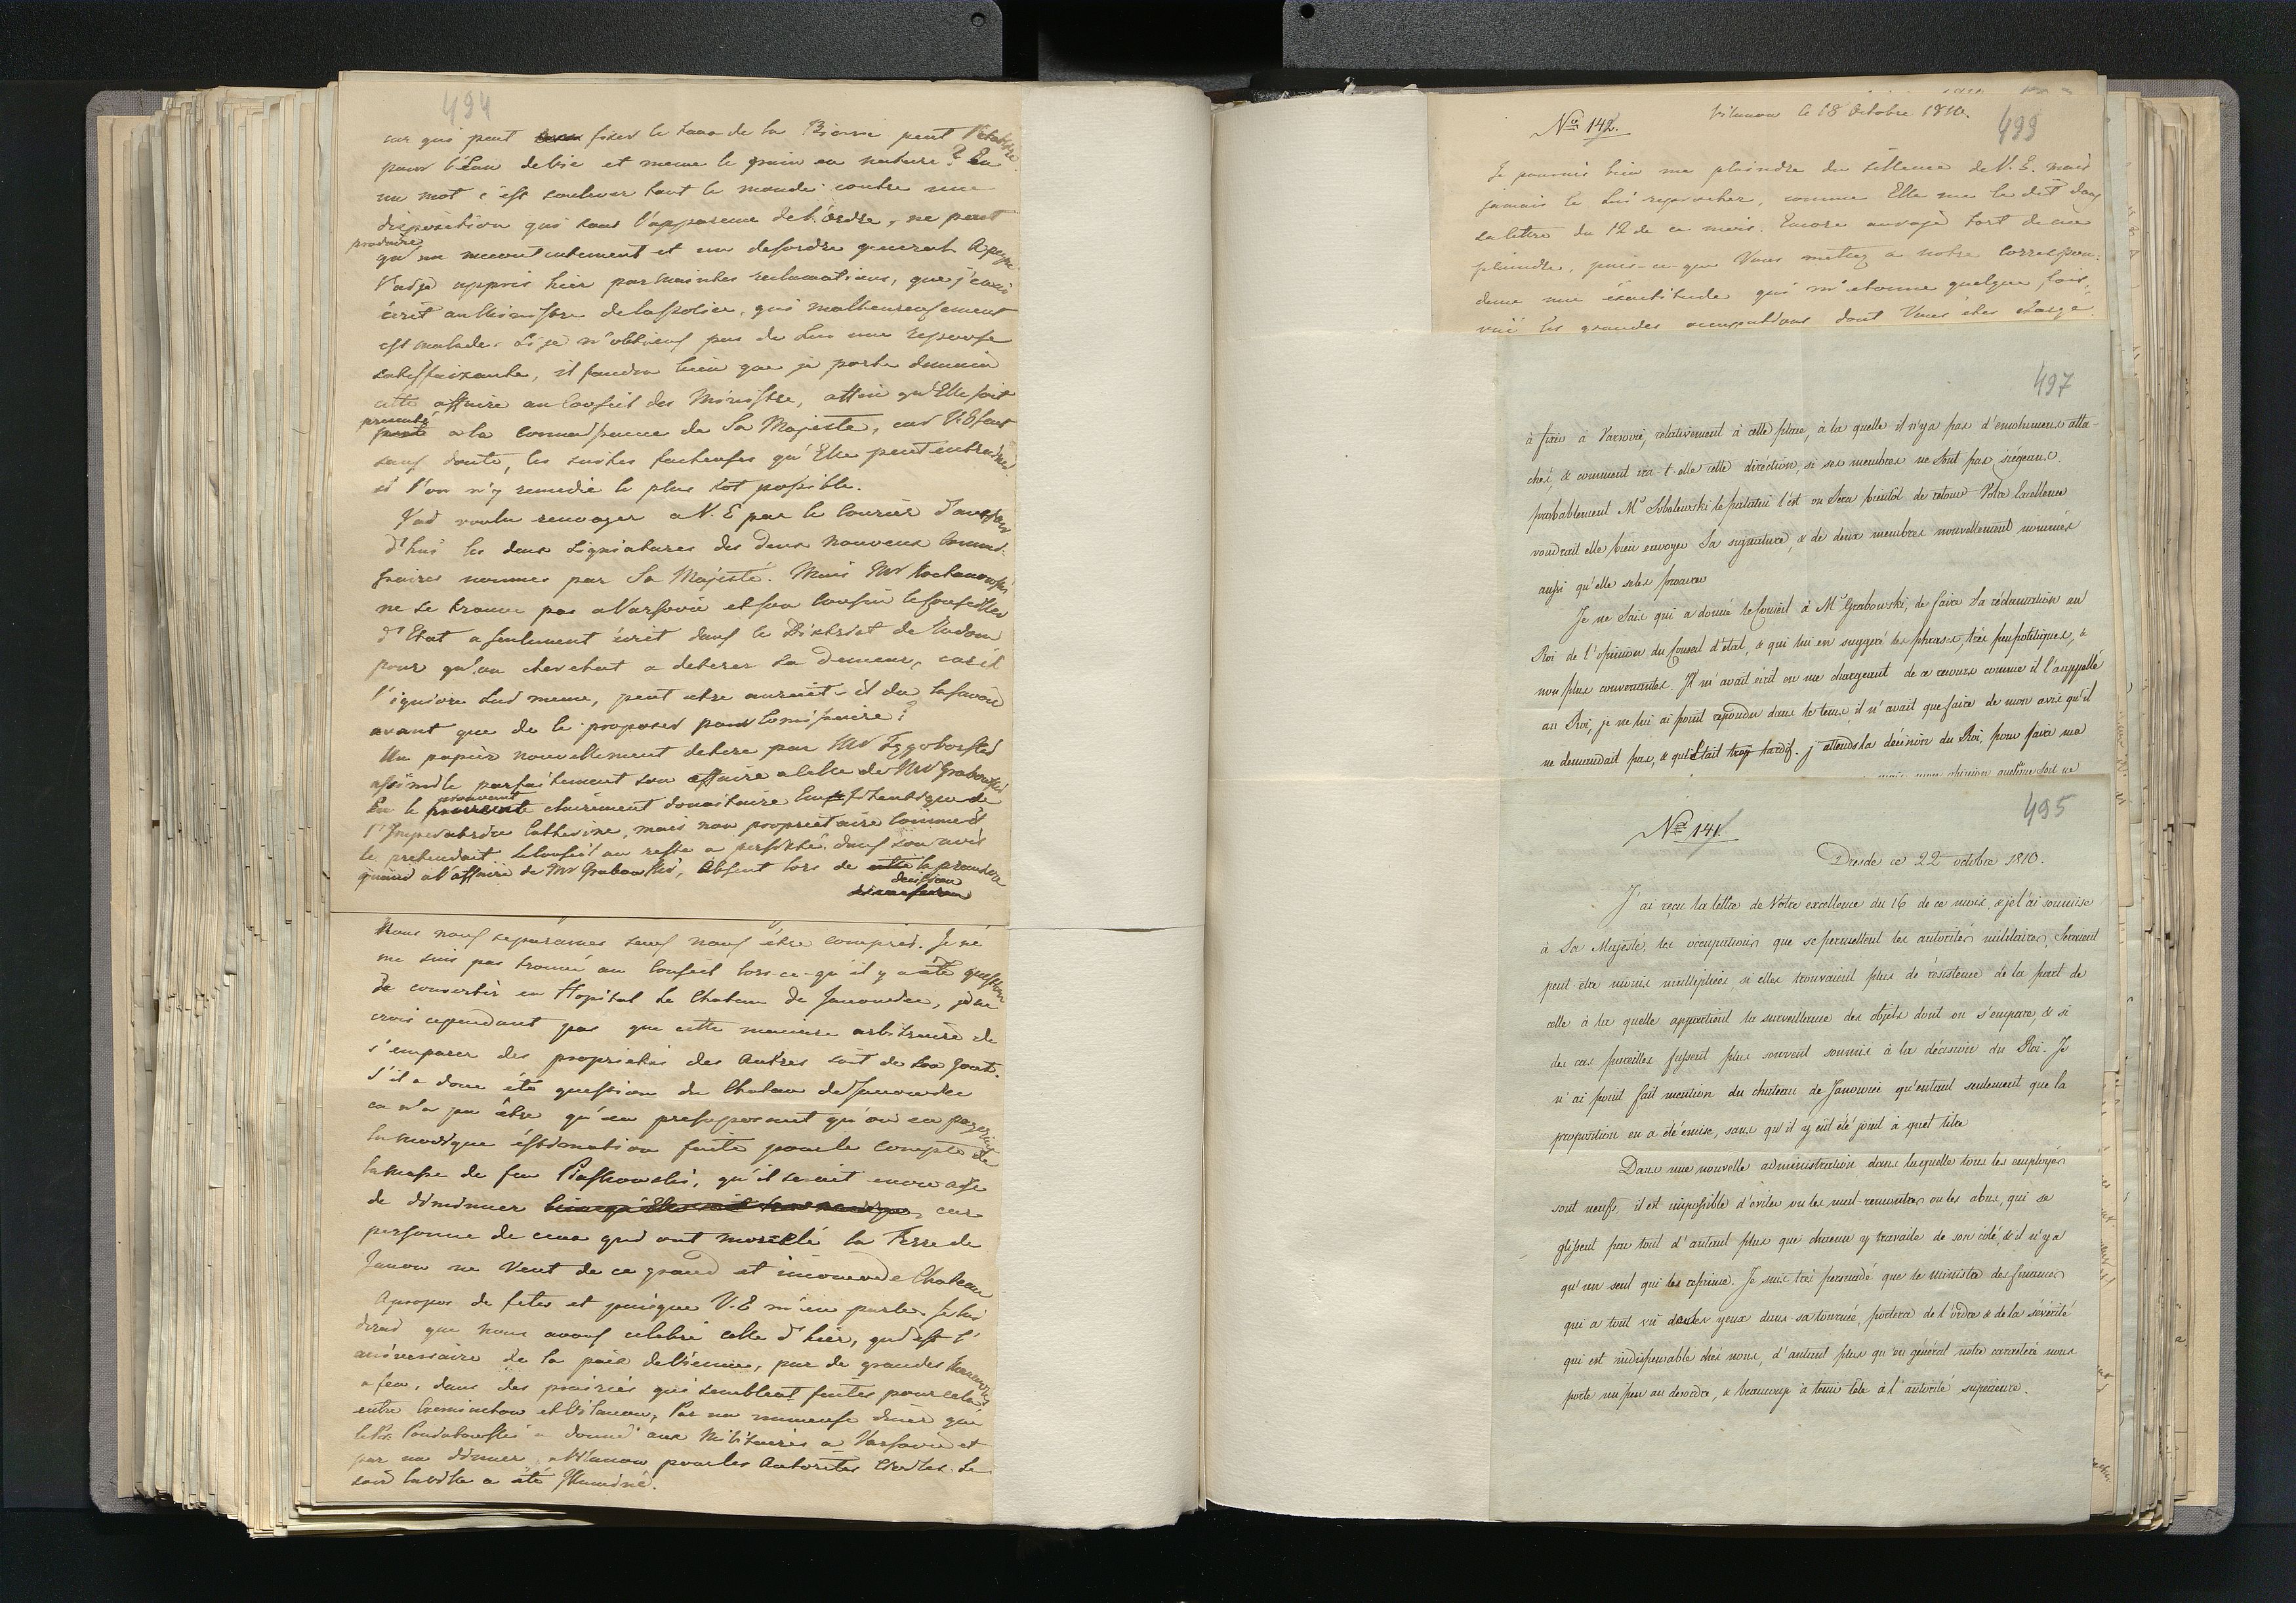 494
car qui peut fixer le taux de la Biere peut l'etablire
pour l'Eau de Vie et meme le grain en nature? En
un mot c'est soulever tout le monde contre une
disposition qui sous l'apparence de l'ordre, ne peut
produire
qu'un mecontentement et un desordre general. A peine
l'ai-je appris hier par maintes reclamations, que j'en ai
écrit au Ministre de la Police, qui malheureusement
est malade. Si je n'obtiens pas de Lui une reponse
satisfaisante, il faudra bien que je porte demain
cette affaire au Conseil des Ministres, affin qu'Elle soit
presentée
porté a la connaissance de Sa Majesté, car V.E. sent
sans doute, les suites facheuses qu'Elle peut entrainer
si l'on n'y remedie le plus tot possible.
J'ai voulu renvoyer a V.E par le Courier d'aujour
d'hui les deux signatures des deux nouveaux Commis-
saires nommés par Sa Majesté. Mais Mr Kochanowski
ne se trouve pas a Varsovie et son Cousin le Conseiller
d'Etat a seulement écrit dans le District de Radom
pour qu'on cherchat a deterer sa demeure, car il
l'ignore Lui meme, peut etre auroit-il du le savoir
avant que de le proposer pour Comissaire?
Un papier nouvellement deteré par Mr
assimile parfaitement son affaire a celle de Mr Grabowski
En le prouvant clairement donataire Emphiteutique de
l'Imperatrice Catherine, mais non proprietaire comme il
le pretendait. Le Conseil au reste a persisté dans son avis
quand a l'affaire de Mr Grabowski, Absent lors de cette la premiere
decision
discussion
Nous nous separames sans nous être compris. Je ne
me suis pas trouvé au Conseil lors-ce-qu'il y a été question
de convertir en Hopital le Chateau de Janowiec, je ne
crois cependant pas que cette maniere arbitraire de
s'emparer des proprietés des Autres soit de son gout.
S'il a donc été question du Chateau de Janowiec
ce n'a pu être qu'en presupposant qu'on en payerait
la modique estimation faite pour le compte de
la masse de feu Piaskowski, qu'il serait encore aisé
de diminuer car
personne de ceux qui ont morcelé la Terre de
Janow ne veut de ce grand et incommode Chateau
Apropos de fetes et puisque V.E m'en parle, je lui
dirai que nous avons celebré celle d'hier, qui est l'
aniversaire de la paix de Vienne, par de grandes manœuvres
a feu, dans des prairies qui semblent faites pour cela
entre Czerniakow et Vilanow, Par un nombreuse diner que
le Pr. Poniatowski a donné aux Militaires a Varsovie et
par un dinner a Vilanow pour les Autorités Civiles. Le
soir la ville a été Illuminé.
No 142.
Vilanow le 18 Octobre 1810.
499
Je pourrais bien me plaindre du sillence de V.E. mais
jamais le Lui reprocher, comme Elle me le dit dans
sa lettre du 12 de ce mois. Encore aurai-je tort de me
plaindre, puis-ce-que Vous mettez a notre correspon-
dance une éxactitude qui m'etonne quelque fois,
vuë les grandes occupations dont Vous étes chargé.
497
à faire à Varsovie, relativement à cette place, à la quelle il n'y a pas d'emolumens atta-
chés, & comment ira-t-elle cette diréction, si ses membres ne sont pas siégeans.
probablement Mr Sobolewski le palatin l'est ou sera bientôt de retour. Votre Excellence
voudrait elle bien envoyer Sa signature, & de deux membres nouvellement nommés
aussi qu'elle se les procure
Je ne sais qui a donné le Conseil à Mr Grabowski, de faire Sa réclamation au
Roi de l'opinion du Conseil d'état, & qui lui en suggeré les phrases, très peu politiques, &
non plus convenantes. Il m'avait écrit en me chargeant de ce recours comme il l'appellé
au Roi, je ne lui ai point repondu dans le tems il n'avait que faire de mon avis qu'il
ne demandait pas, & qui était trop tardif. j'attends la décision du Roi, pour faire ma
495
No 141.
Dresde ce 22 octobre 1810.
J'ai reçu la lettre de Votre excellence du 16 de ce mois, & je l'ai soumise
à Sa Majesté, les occupations que se permettent les autorités militaires, seraient
peut-être moins multipliées, si elles trouvaient plus de résistence de la part de
celle à la quelle appartient la surveillance des objets dont on s'empare, & si
des cas pareilles fussent plus souvent soumis à la décision du Roi. Je
n'ai point fait mention du chateau de Janowiec qu'entant seulement que la
proposition en a été émise, sans qu'il y eût été joint à quel titre
Dans une nouvelle administration dans laquelle tous les employés
sont neufs, il est impossible d'eviter ou les mal-rencontres ou les abus, qui se
glissent par tout d'autant plus que chacun y travaile de son coté, & il n'y a
qu'un seul qui les reprime. Je suis très persuadé que le ministre des finances
qui a tout vû de ses yeux dans sa tournée, portera de l'ordre & de la sévérité
qui est indispensable chés nous, d'autant plus qu'en général notre caractère nous
porte un peu au desordre, & beaucoup à tenir tête à l'autorité supérieure.